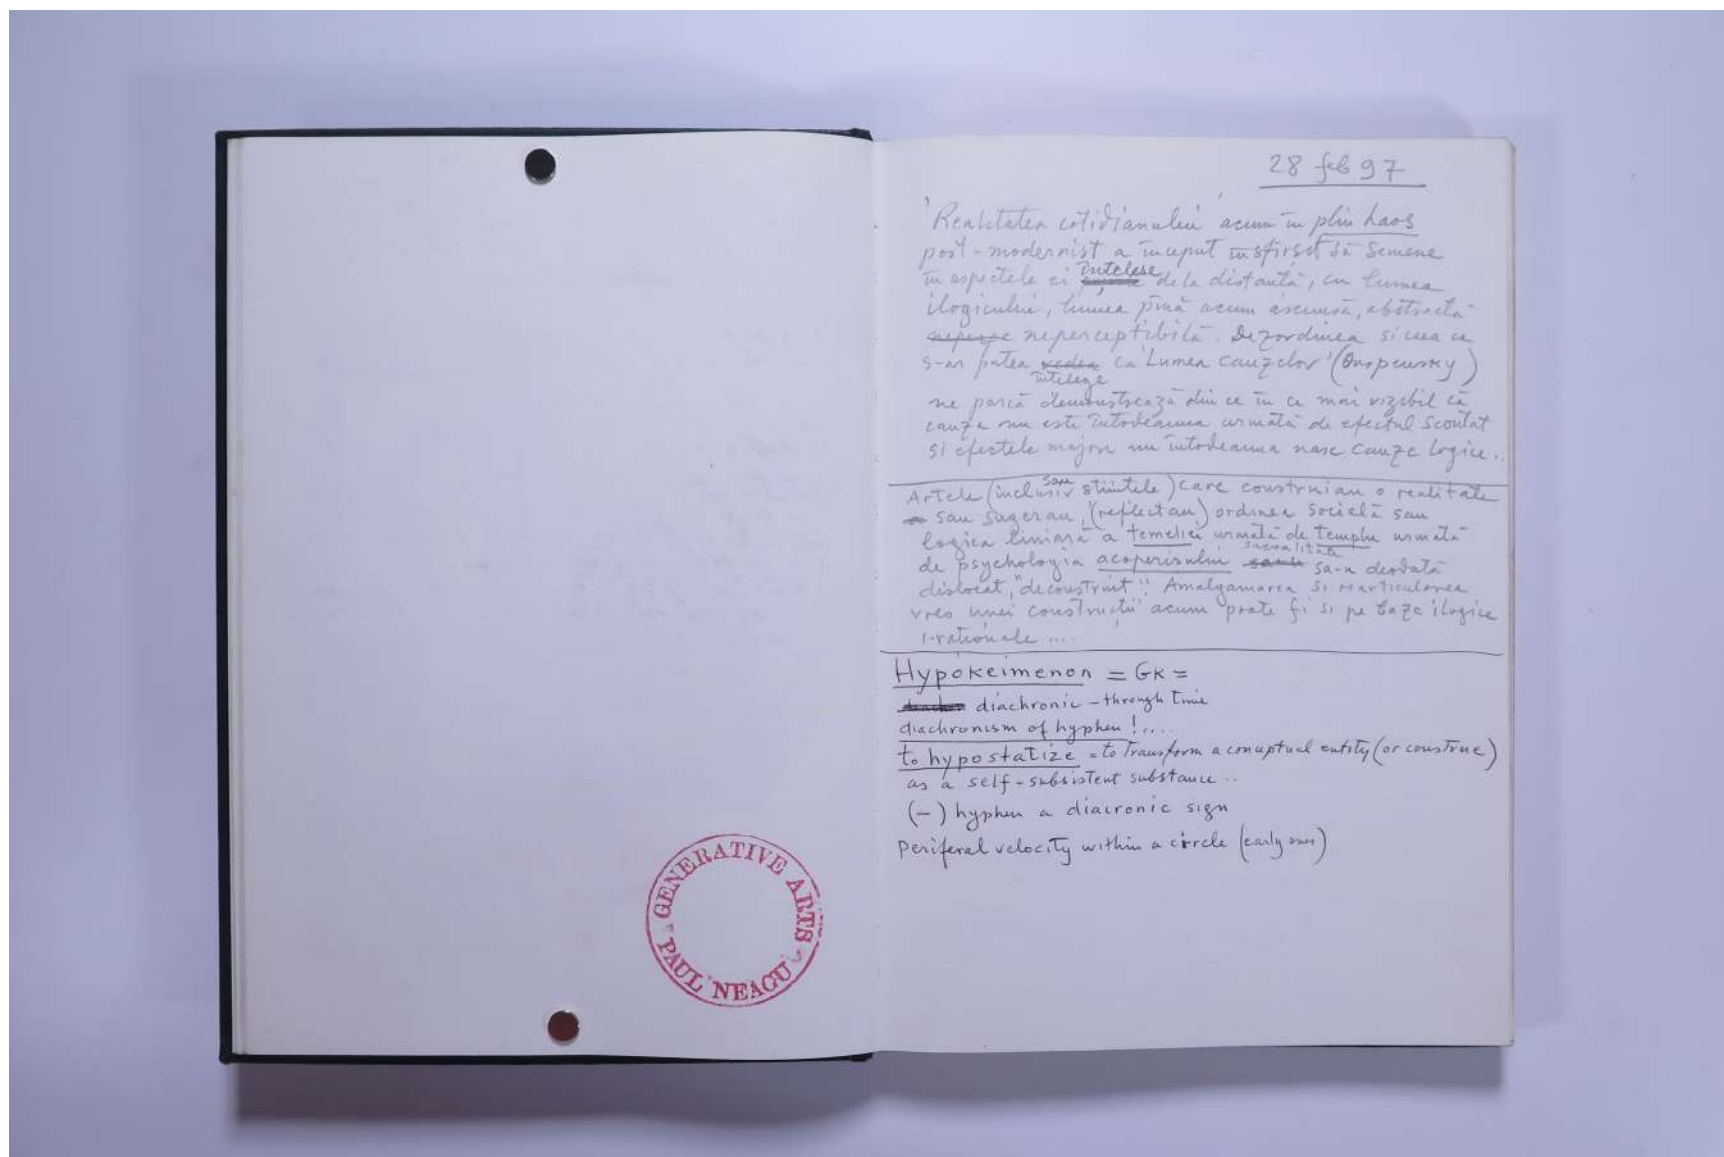 GENERATIVE ARTS
PAUL NEAGU
28 feb 97
'Realitatea cotidianului' acum în plin haos
post-modernist a început însfîrsit să semene
în aspectele ei întelese de la distantă, cu lumea
ilogicului, lumea pînă acum ascunsă, abstractă
neperceptibilă. Dezordinea si ceea ce
s-ar putea întelege ca 'Lumea cauzelor' (Ouspensky)
ne parcă demonstrează din ce în ce mai vizibil că
cauza nu este întodeauna urmată de efectul scontat
si efectele majore nu întodeauna nasc cauze logice..
Artele (inclusiv sau stiintele) care construiau o realitate
sau sugerau, (reflectau) ordinea socială sau
logica liniară a temeliei urmată de templu urmată
de psychologia acoperisului sa-u deodată
dislocat, "deconstruit". Amalgamarea si rearticularea
vreo unei constructii acum poate fi si pe baze ilogice
i-rationale ....
Hypokeimenon = GK =
diachronic - through time
diachronism of hyphen !....
to hypostatize = to transform a conceptual entity (or construe)
as a self-subsistent substance ..
(-) hyphen a diacronic sign
Periferal velocity within a circle (early ones)